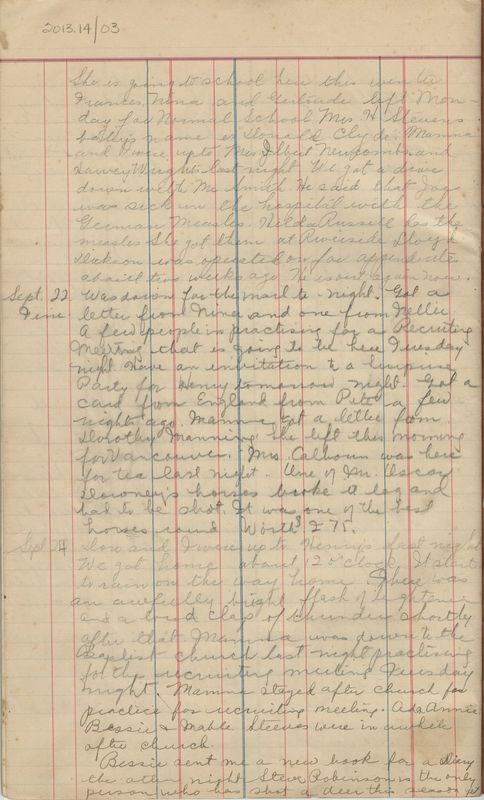 2013.14/03
She is going to school here this winter
Frances, Nina and Gertrude left Mon-
day for Normal School Mrs. H. Stevens
baby's name is Donald Clyde. Mamma
and I were up to Mrs Albert Newcombs and
Harvey Wrights last night We got a drive
down with Mr Smith. He said that Joe
was sick in the hospital with the
German Measles. Hilda Russell has the
measles She got them at Riverside Lloyd
Dickson was operated on for appendicitis
about two weeks ago. He is out again now.
Sept. 22 Was down for the mail to-night. Got a
Fine letter from Nina and one from Nellie
A few people in practising for a Recruiting
Meeting that is going to be here Tuesday
night. Have an invitation to a surprise
Party for Henry tomorrow night. Got a
card from England from Pete a few
nights ago. Mamma got a letter from
Dorothy Manning She left this morning
for Vancouver. Mrs. Calhoun was here
for tea last night. One of Mr. Oscar
Downey's horses broke a leg and
had to be shot. It was one of the best
horses round Worth $275.
Sept. 24 and I were up to Henry's last night
We got home about 12 o'clock. It start
to rain on the way home. There was
an awfully bright flash of lightening
and a loud clap of thunder shortly
after that. Mamma was down to the
Baptist church last night practising
for the recruiting meeting Tuesday
night. Mamma stayed after church for
practice for recruiting meeting. Ada Annie
Bessie & Mable Steeves were in awhile
after church.
Bessie sent me a new book for a Diary
the other night Steve Robinson is the only
person who has shot a deer this season